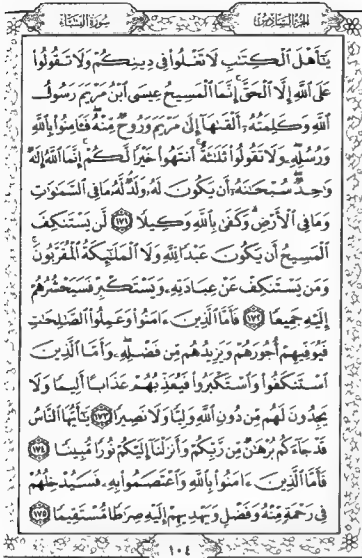 الجزء السادس سورة النساء
يَٰٓأَهْلَ ٱلْكِتَٰبِ لَا تَغْلُوا۟ فِى دِينِكُمْ وَلَا تَقُولُوا۟
عَلَى ٱللَّهِ إِلَّا ٱلْحَقَّ ۚ إِنَّمَا ٱلْمَسِيحُ عِيسَى ٱبْنُ مَرْيَمَ رَسُولُ
ٱللَّهِ وَكَلِمَتُهُۥٓ أَلْقَىٰهَآ إِلَىٰ مَرْيَمَ وَرُوحٌ مِّنْهُ ۖ فَـَٔامِنُوا۟ بِٱللَّهِ
وَرُسُلِهِۦ ۖ وَلَا تَقُولُوا۟ ثَلَٰثَةٌ ۚ ٱنتَهُوا۟ خَيْرًا لَّكُمْ ۚ إِنَّمَا ٱللَّهُ إِلَٰهٌ
وَٰحِدٌ ۖ سُبْحَٰنَهُۥٓ أَن يَكُونَ لَهُۥ وَلَدٌ ۘ لَّهُۥ مَا فِى ٱلسَّمَٰوَٰتِ
وَمَا فِى ٱلْأَرْضِ ۗ وَكَفَىٰ بِٱللَّهِ وَكِيلًا ١٧١ لَّن يَسْتَنكِفَ
ٱلْمَسِيحُ أَن يَكُونَ عَبْدًا لِّلَّهِ وَلَا ٱلْمَلَٰٓئِكَةُ ٱلْمُقَرَّبُونَ ۚ
وَمَن يَسْتَنكِفْ عَنْ عِبَادَتِهِۦ وَيَسْتَكْبِرْ فَسَيَحْشُرُهُمْ
إِلَيْهِ جَمِيعًا ١٧٢ فَأَمَّا ٱلَّذِينَ ءَامَنُوا۟ وَعَمِلُوا۟ ٱلصَّٰلِحَٰتِ
فَيُوَفِّيهِمْ أُجُورَهُمْ وَيَزِيدُهُم مِّن فَضْلِهِۦ ۖ وَأَمَّا ٱلَّذِينَ
ٱسْتَنكَفُوا۟ وَٱسْتَكْبَرُوا۟ فَيُعَذِّبُهُمْ عَذَابًا أَلِيمًا وَلَا
يَجِدُونَ لَهُم مِّن دُونِ ٱللَّهِ وَلِيًّا وَلَا نَصِيرًا ١٧٣ يَٰٓأَيُّهَا ٱلنَّاسُ
قَدْ جَآءَكُم بُرْهَٰنٌ مِّن رَّبِّكُمْ وَأَنزَلْنَآ إِلَيْكُمْ نُورًا مُّبِينًا ١٧٤
فَأَمَّا ٱلَّذِينَ ءَامَنُوا۟ بِٱللَّهِ وَٱعْتَصَمُوا۟ بِهِۦ فَسَيُدْخِلُهُمْ
فِى رَحْمَةٍ مِّنْهُ وَفَضْلٍ وَيَهْدِيهِمْ إِلَيْهِ صِرَٰطًا مُّسْتَقِيمًا ١٧٥
١٠٤